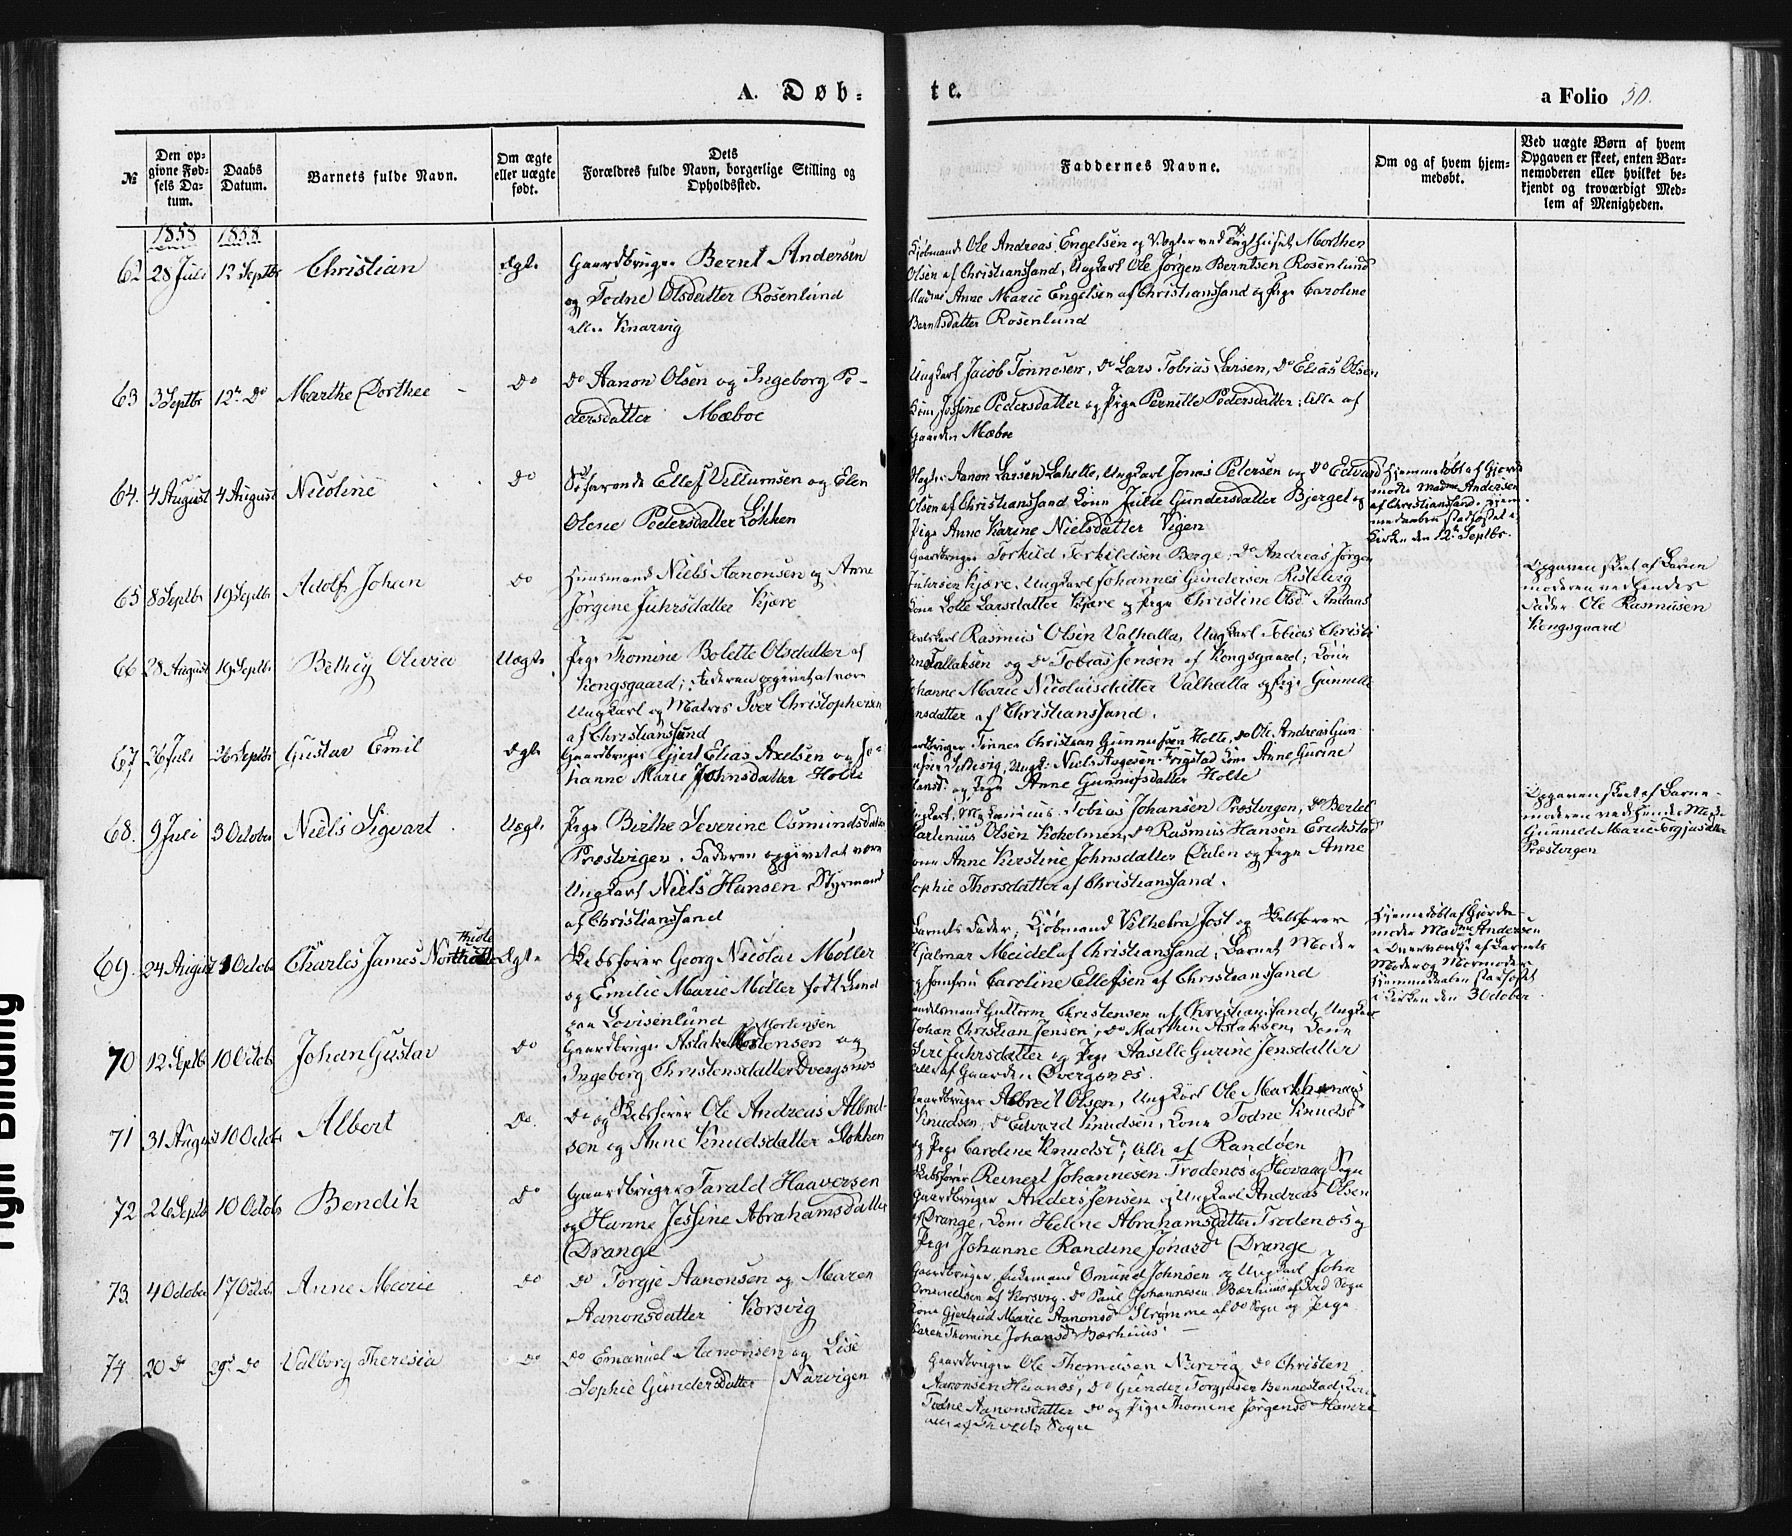 A. Døb-
te.
a Folio 50.
№
Den opgivne Fødsels Datum.
Daabs Datum.
Barnets fulde Navn.
Om ægte eller uægte født.
Dets Forældres fulde Navn, borgerlige Stilling og Opholdssted.
Faddernes Navne.
Om og af hvem hjemmedøbt.
Ved uægte Børn af hvem Opgaven er skeet, enten Barnemoderen eller hvilket bekjendt og troværdigt Medlem af Menigheden.
1858 1858
62 28 Juli 12 Septbr Christian Ægte Gaardbruger Bernt Andersen
og Todne Olsdatter Rosenlund
eller Knarvig
Kjøbmand Ole Andreas Engelsen og Vægter ved Tugthuset Morthen
Olsen af Christianssand, Ungkarl Ole Jørgen Berntsen Rosenlund
Madme Anne Marie Engelsen af Christianssand og Pige Caroline
Berntsdatter Rosenlund
63 3 Septbr 12te Do Marthe Dorthee Do Do Aanon Olsen og Ingeborg Pe-
dersdatter Mæboe
Ungkarl Jacob Tønnesen, Do Lars Tobias Larsen, Do Elias Olsen
Kone Jossine Pedersdatter og Pige Pernille Pedersdatter; alle af
Gaarden Mæboe
64. 4 August 4 August Nicoline Do Søfarende Ellef Villumsen og Elen
Olene Pedersdatter Løkken
Aanon Larsen Lahelle, Ungkarl Jonas Petersen og Do Edvard
Olsen af Christianssand Kone Julie Gundersdatter Bjerget og
Pige Anne Karine Nielsdatter Vigen
Hjemmedøbt af Gjorde-
moder Madme Andersen
af Christianssand. Hjem-
medaaben stadfæstet i
Kirken den 12te Septbr.
65 8 Septbr 19 Septbr Adolf Johan Do Huusmand Niels Aanonsen og Anne
Jørgine Juhrsdatter Kjære
Gaardbruger Torkild Terkildsen Berge, Do Andreas Jørgen
Juhrsen Kjære. Ungkarl Johannes Gundersen
Kone Lotte Larsdatter Kjære og Pige Christine Olsd
66 28 August 19 Septbr Bethsy Olivia Uægte Pige Thomine Bolette Olsdatter af
Kongsgaard; Faderen opgivet at være
Ungkarl og Matros Iver Christophersen
af Christianssand
Rasmus Olsen Valhalla, Ungkarl Tobias Christi
Tallaksen og Do Tobias Jensen af Kongsgaard; Kone
Johanne Marie Nicolaisdatter Valhalla og Pige Gunnille
af Christianssand.
Opgaven skeet af Barne
moderen ved hendes
Fader Ole Rasmusen
Kongsgaard
67 26 Juli 26 Septbr Gustav Emil Ægte Gaardbruger Gjert Elias Axelsen og Jo-
hanne Marie Johnsdatter Holte
Gaardbruger Tønnes Christian Gunnufsen Holte, Do Ole Andreas Gun-
Ungk: Niels Aagesen Frigstad Kone Anne Gurine
og Pige Anne Gunnufsdatter Holte
68. 9 Juli 3 October Niels Sigvart Uægte Pige Birthe Severine Osmundsdatter
Præstvigen. Faderen opgivet at være
Ungkarl Niels Hansen, Styrmand
af Christianssand
Ungkarl Tobias Johansen Præstvigen, Do Bertel
Martinius Olsen Koholmen, Do Rasmus Hansen Erickstad
Kone Anne Kirstine Johnsdatter Dalen og Pige Anne
Sophie Thorsdatter af Christianssand.
Opgaven skeet af Barne-
moderen ved hendes Moder
Gunnild Marie Torgjusdatter
Præstvigen
69. 24 August 3 October Charles James Ægte Skibsfører Georg Nicolai Møller
og Emilie Marie Møller født Lund
paa Lovisenlund
Barnets Fader, Kjøbmand Vilhelm Jost og Skibsfører
Hjalmar Meidel af Christianssand, Barnets Moder
og Jomfru Caroline Ellefsen af Christianssand
Hjemmedøbt af Gjorde-
moder Madme Andersen
i Overvær af Barnets
Moder og Mormoder
Hjemmedaaben stadfæstet
i Kirken den 3 October
70 12 Septbr 10 Octobr Johan Gustav Do Gaardbruger Aslak Mortensen og
Mortensen
Ingeborg Christensdatter Dvergsnes
Guttorm Christensen af Christianssand, Ungkarl
Johan Christian Jensen, Do Marthin Aslaksen, Kone
Siri Juhrsdatter og Pige Aaselle Gurine Jensdatter
alle af Gaarden Dvergsnes.
71 31 August 10 Octobr Albert Do. Do og Skibsfører Ole Andreas Albret-
sen og Anne Knudsdatter Stokken
Gaardbruger Albret Olsen, Ungkarl Ole
Knudsen, Do Edvard Knudsen, Kone Todne Knudsd
og Pige Caroline Knudsd; alle af Randøen
72 26 Septbr 10 Octobr Bendik Do Gaardbruger Tarald Haaversen
og Hanne Jessine Abrahamsdatter
Drange
Skibsfører Reinert Johannesen Trodenes af Høvaag Sogn
Gaardbruger Anders Jensen og Ungkarl Andreas Olsen
Drange, Kone Helene Abrahamsdatter Trodenes og
Pige Johanne Randine Jonasd Drange
73. 4 October 17 Octobr Anne Marie Do Do Torgje Aanonsen og Maren
Aanonsdatter Korsvig
Gaardbruger Omund Johnsen og Ungkarl John
Omundsen af Korsvig. Do Paul Johannesen Bærhuus Sogn
Kone Gjertrud Marie Aanonsd Strømme af Do Sogn og Pige
Karen Thomine Johansd Bærhuus
74 20 Do 29de Do Valborg Theresia Do Do Emanuel Aanonsen og Lise
Sophie Gundersdatter Narvigen
Gaardbruger Ole Thomesen Narvig, Do Christen
Aanonsen Haanes, Do Gunder Torgjusen Bennestad, Kone
Todne Aanonsdatter Do og Pige Thomine Jørgensd Hamre
alle af Tveits Sogn
Tight Binding